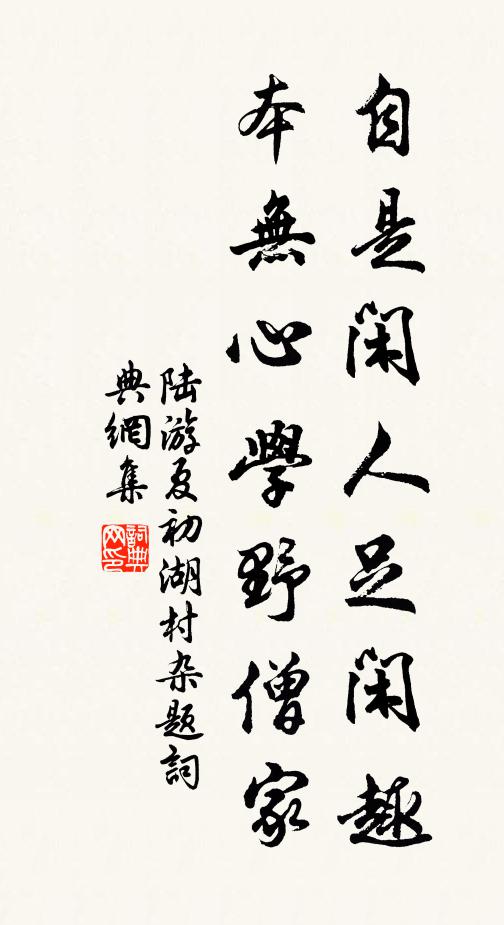 自是闲人足闲趣
本無心學野僧家
陆游夏初湖村杂题詞
典網集
詞典网印